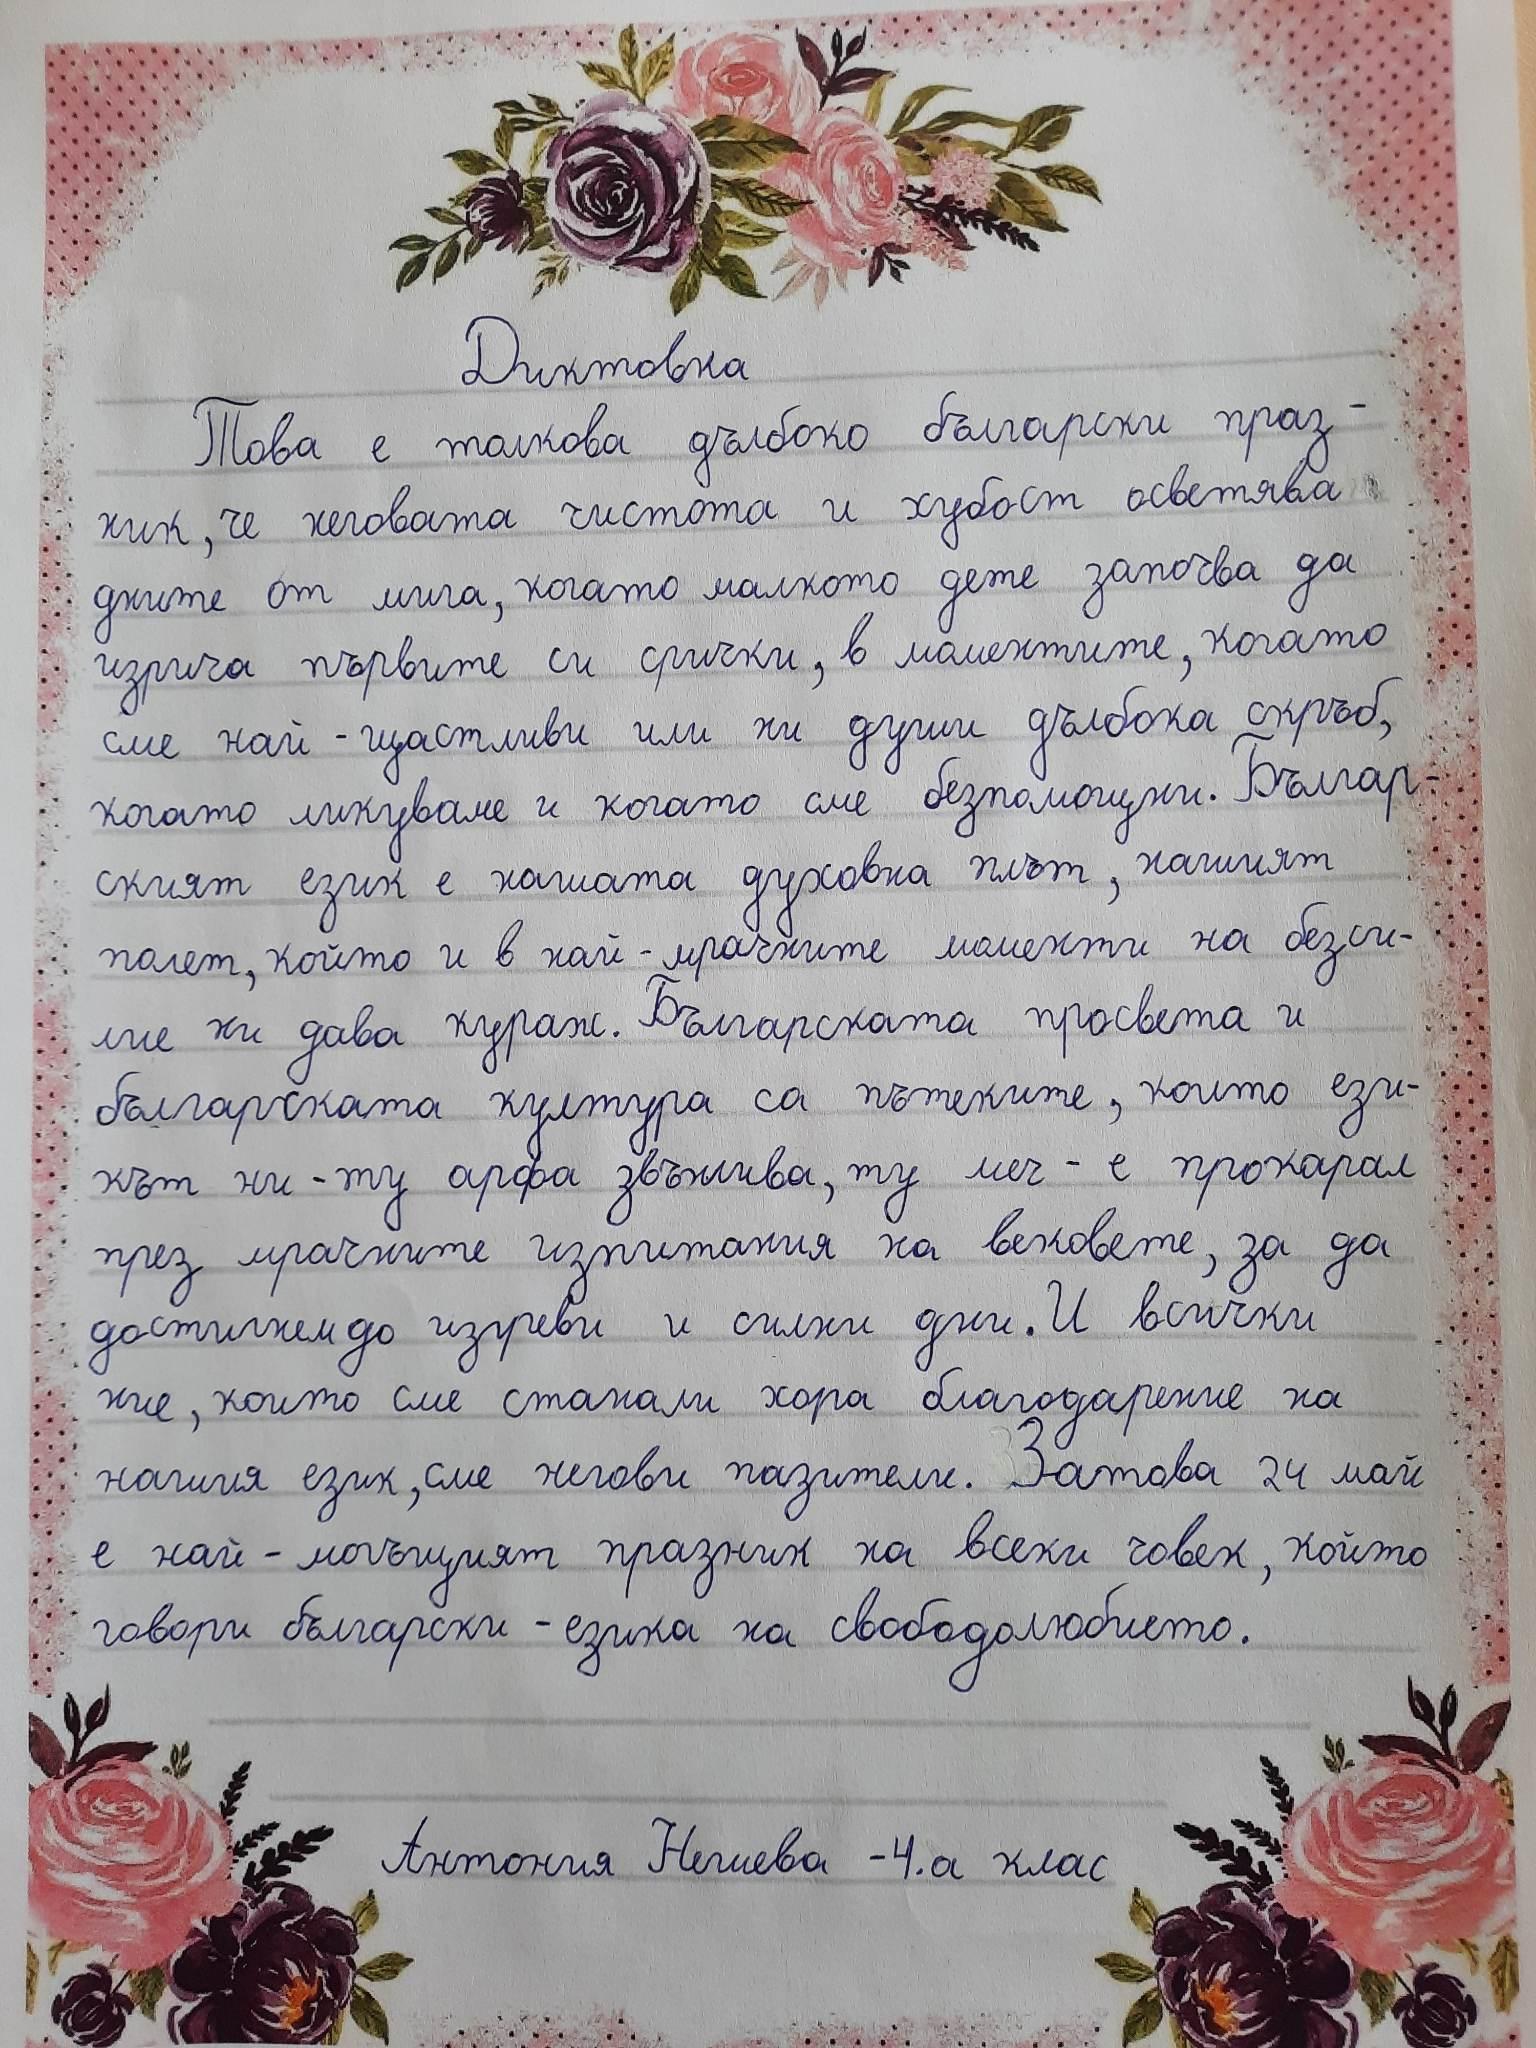 Диктовка
Това е толкова дълбоко български праз-
ник, че неговата чистота и хубост осветява
дните от мига, когато малкото дете започва да
изрича първите си срички, в моментите, когато
сме най-щастливи или ни души дълбока скръб,
когато ликуваме и когато сме безпомощни. Българ-
ският език е нашата духовна плът, нашият
полет, който и в най-мрачните моменти на безси-
лие ни дава кураж. Българската просвета и
българската култура са пътеките, които ези-
кът ни - ту арфа звънлива, ту меч - е прокарал
през мрачните изпитания на вековете, за да
достигнем до изгреви и силни дни. И всички
ние, които сме станали хора благодарение на
нашия език, сме негови пазители. Затова 24 май
е най-могъщият празник на всеки човек, който
говори български - езика на свободолюбието.
Антония Нешева - 4.а клас